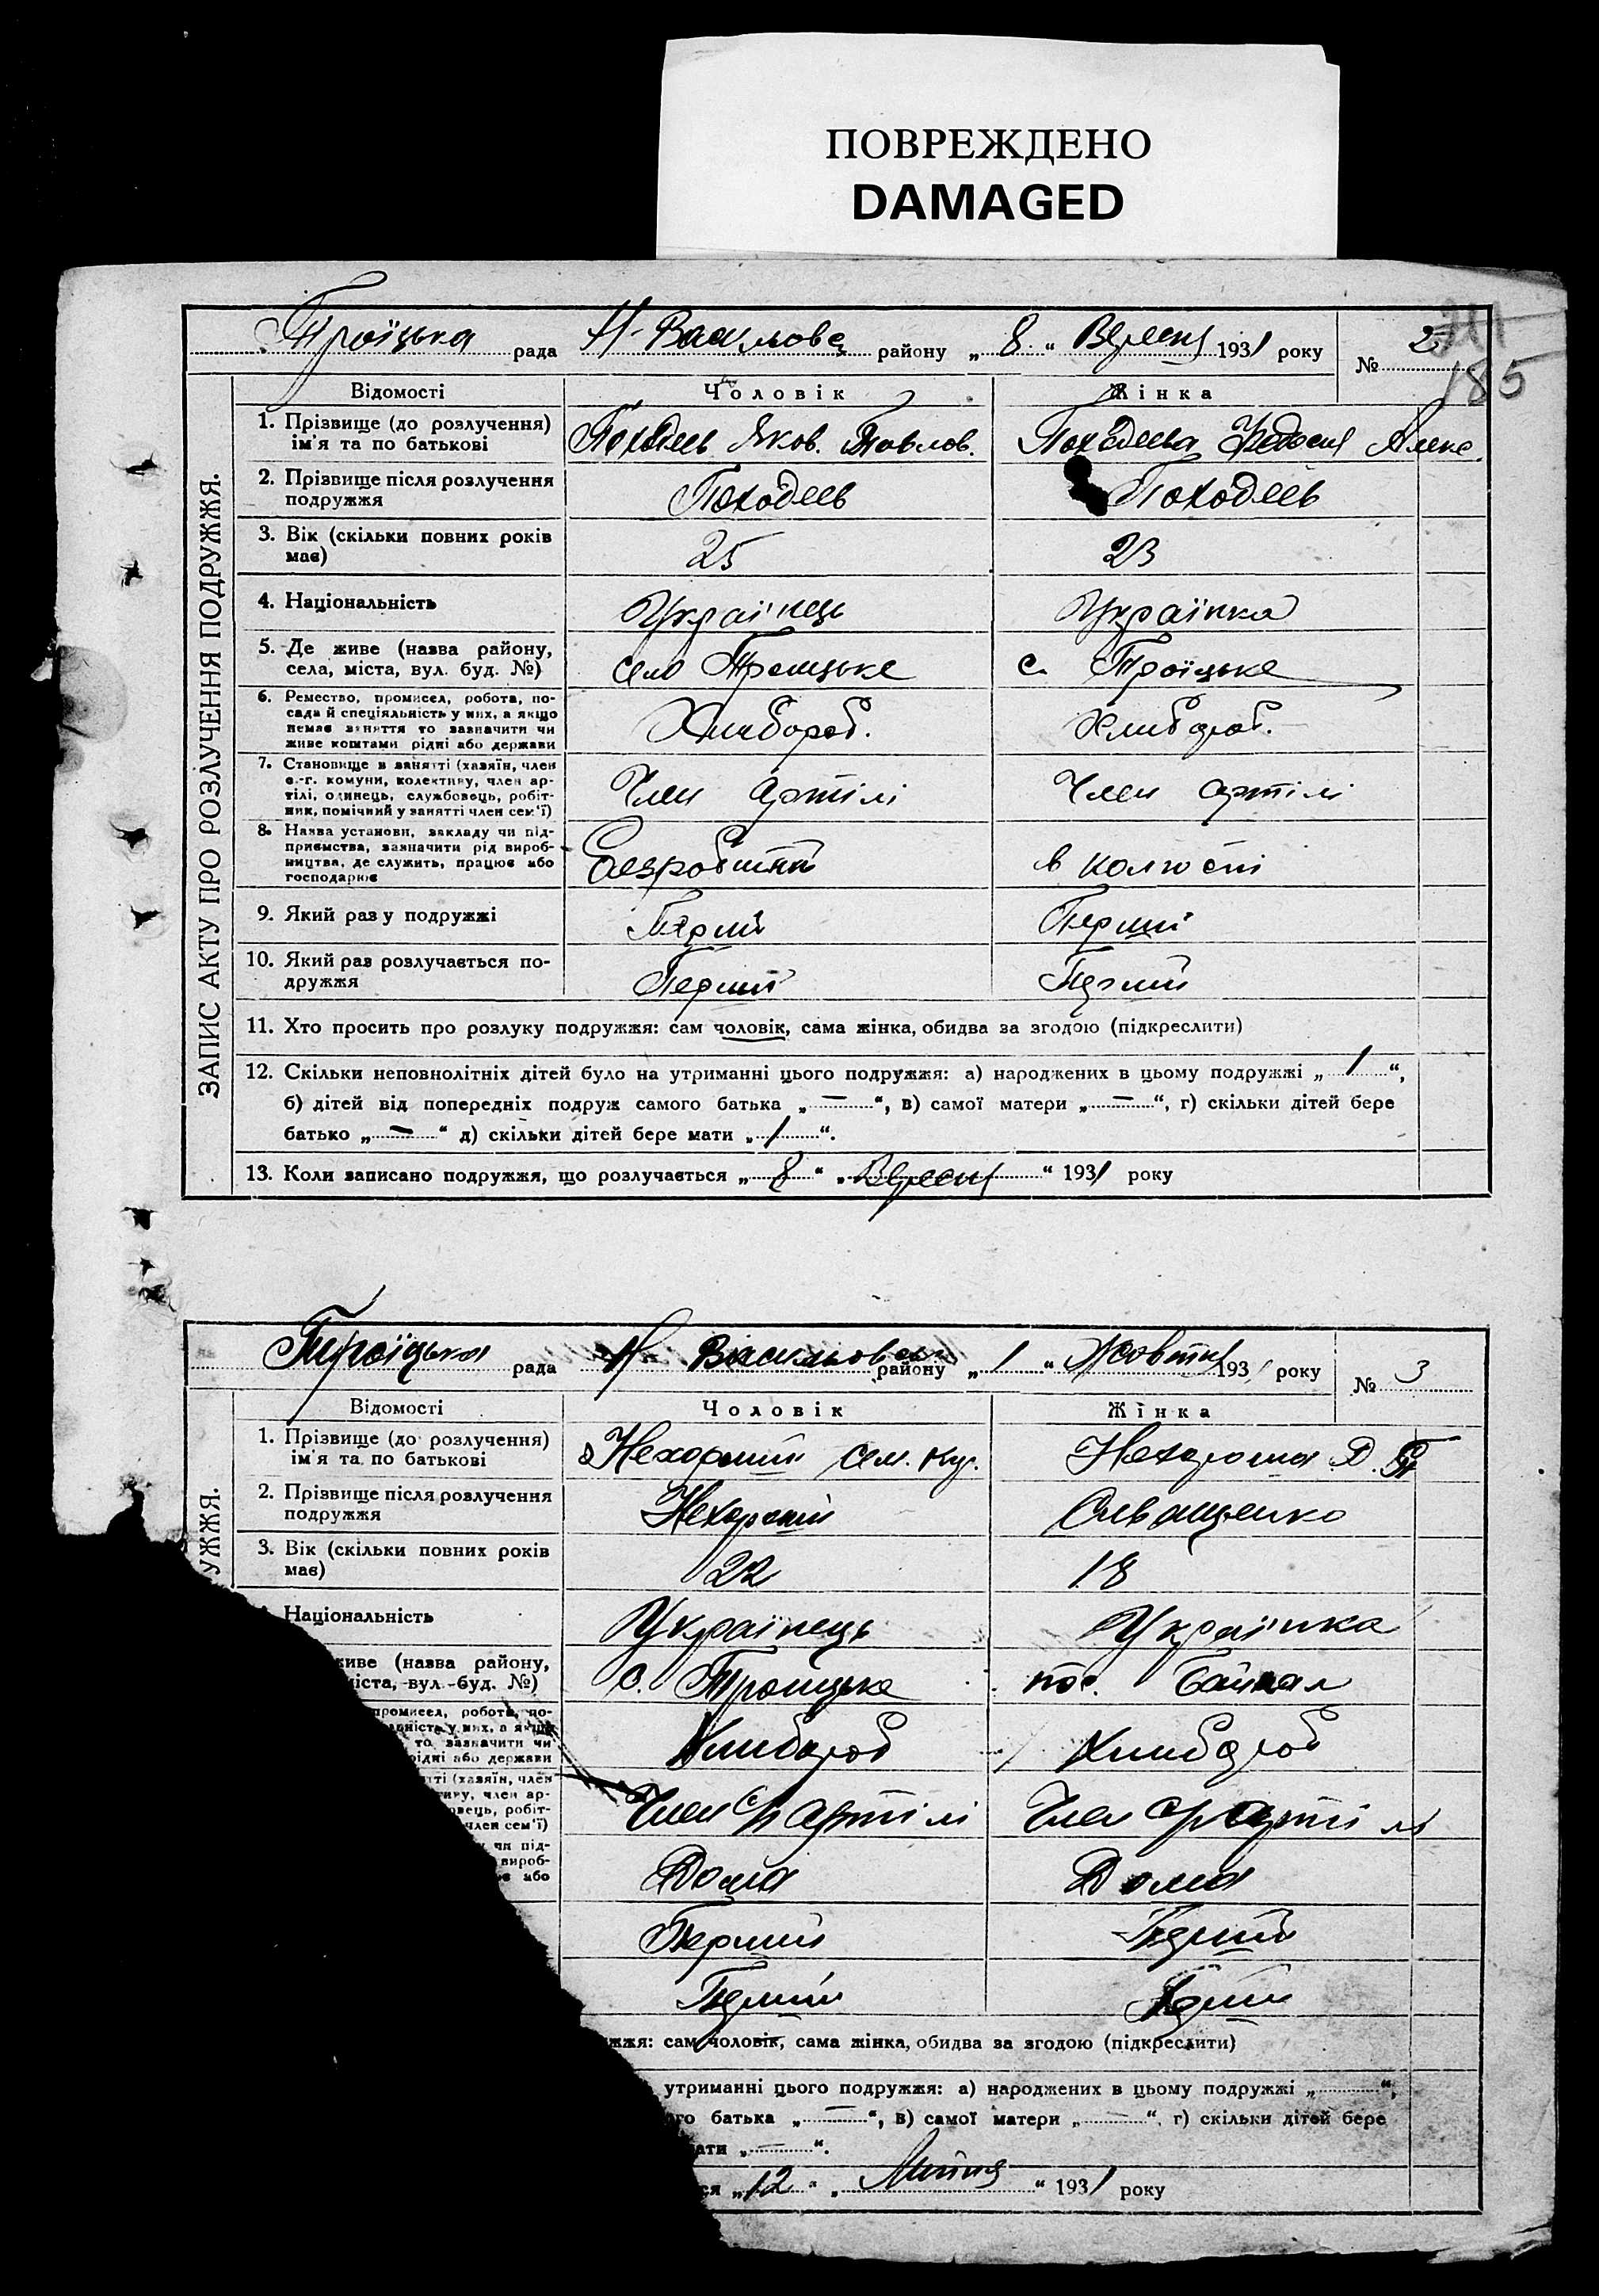 ПОВРЕЖДЕНО
DAMAGED
185
Троїцька рада Н-Васильовс району „ 8 “ Вересня 1931 року № 2
ЗАПИС АКТУ ПРО РОЗЛУЧЕННЯ ПОДРУЖЖЯ.
Відомості Чоловік Жінка
1. Прізвище (до розлучення) ім'я та по батькові Походеев Яков. Павлов. Походеева Федосия Алекс.
2. Прізвище після розлучення подружжя Походеев Походеев
3. Вік (скільки повних років має) 25 23
4. Національність Українець Українка
5. Де живе (назва району, села, міста, вул. буд. №) село Троицьке с. Троїцьке
6. Ремество, промисел, робота, посада й спеціяльність у них, а якщо немає заняття то зазначити чи живе коштами рідні або держави Хлибороб. Хлибороб.
7. Становище в занятті (хазяїн, член с.-г. комуни, колективу, член артілі, одинець, службовець, робітник, помічний у занятті член сем'ї) Член артілі Член артілі
8. Назва установи, закладу чи підприємства, зазначити рід виробництва, де служить, працює або господарює в
9. Який раз у подружжі Перший Перший
10. Який раз розлучається подружжя Перший Перший
11. Хто просить про розлуку подружжя: сам чоловік, сама жінка, обидва за згодою (підкреслити)
12. Скільки неповнолітніх дітей було на утриманні цього подружжя: а) народжених в цьому подружжі „ 1 “,
б) дітей від попередніх подруж самого батька „ — “, в) самої матери „ — “, г) скільки дітей бере
батько „ — “ д) скільки дітей бере мати „ 1 “.
13. Коли записано подружжя, що розлучається „ 8 “ „ Вересня “ 1931 року
Троїцька рада Н- Васильовськ району „ 1 “ Жовтня 193 року № 3
УЖЖЯ.
Відомості Чоловік Жінка
1. Прізвище (до розлучення) ім'я та по батькові Нехороший Сем. Нехороша Д.
2. Прізвище після розлучення подружжя Нехороший
3. Вік (скільки повних років має) 22 18
Національність Українець Українка
живе (назва району, міста, вул. буд. №) с. Троицьке пос.
промисел, робота, по- у них, а якщо то зазначити чи рідні або держави Хлибороб Хлибороб
(хазяїн, член член ар- робіт- член сем'ї) Член артілі Член артілі
чи під- вироб- або Дома Дома
Перший Перший
Перший Перший
сам чоловік, сама жінка, обидва за згодою (підкреслити)
утриманні цього подружжя: а) народжених в цьому подружжі „ “,
батька „ — “, в) самої матери „ — “, г) скільки дітей бере
„ — “.
„ 12 “ „ Липня “ 1931 року